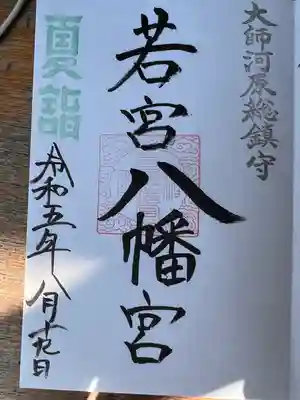 大師河原総鎮守
若宮八幡宮
夏詣
令和五年八月十九日